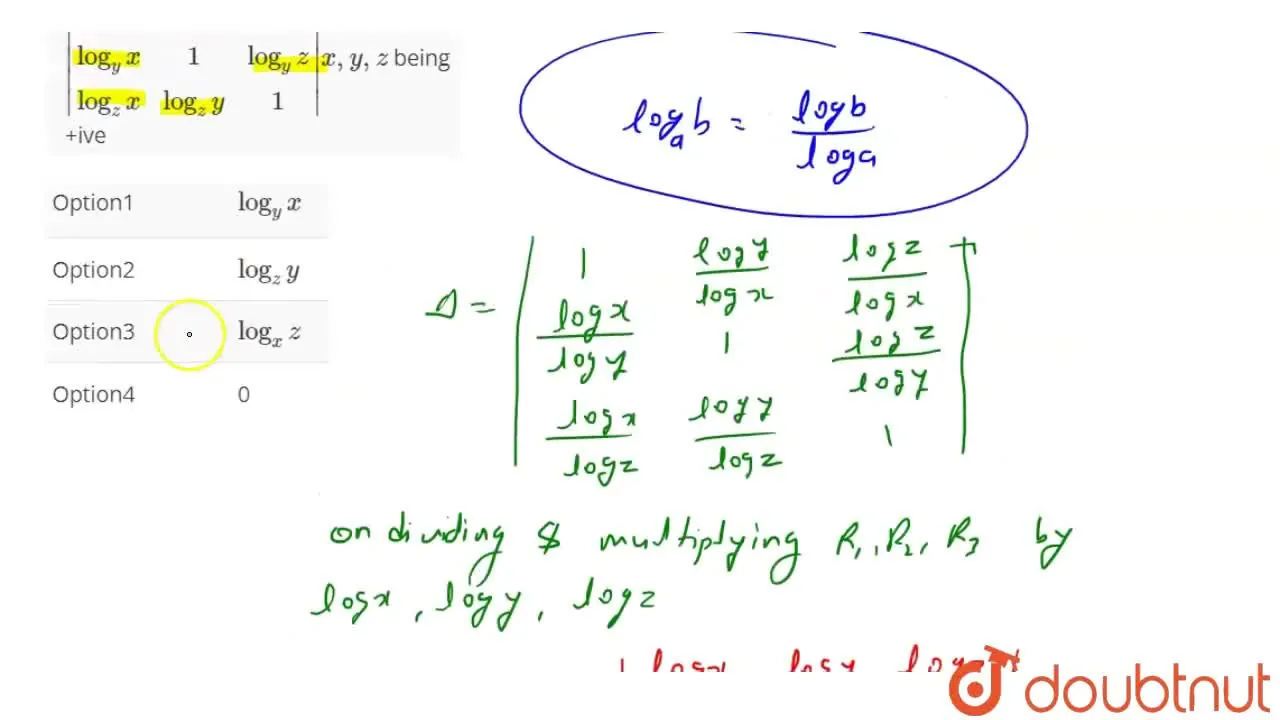 log_y x 1 log_y z x, y, z being
log_z x log_z y 1
+ive
log_a b = log b / log a
Option1 log_y x
Option2 log_z y
Option3 log_x z
Option4 0
Δ = | 1 log y / log x log z / log x |
| log x / log y 1 log z / log y |
| log x / log z log y / log z 1 |
on dividing & multiplying R₁, R₂, R₃ by
log x , log y , log z
doubtnut